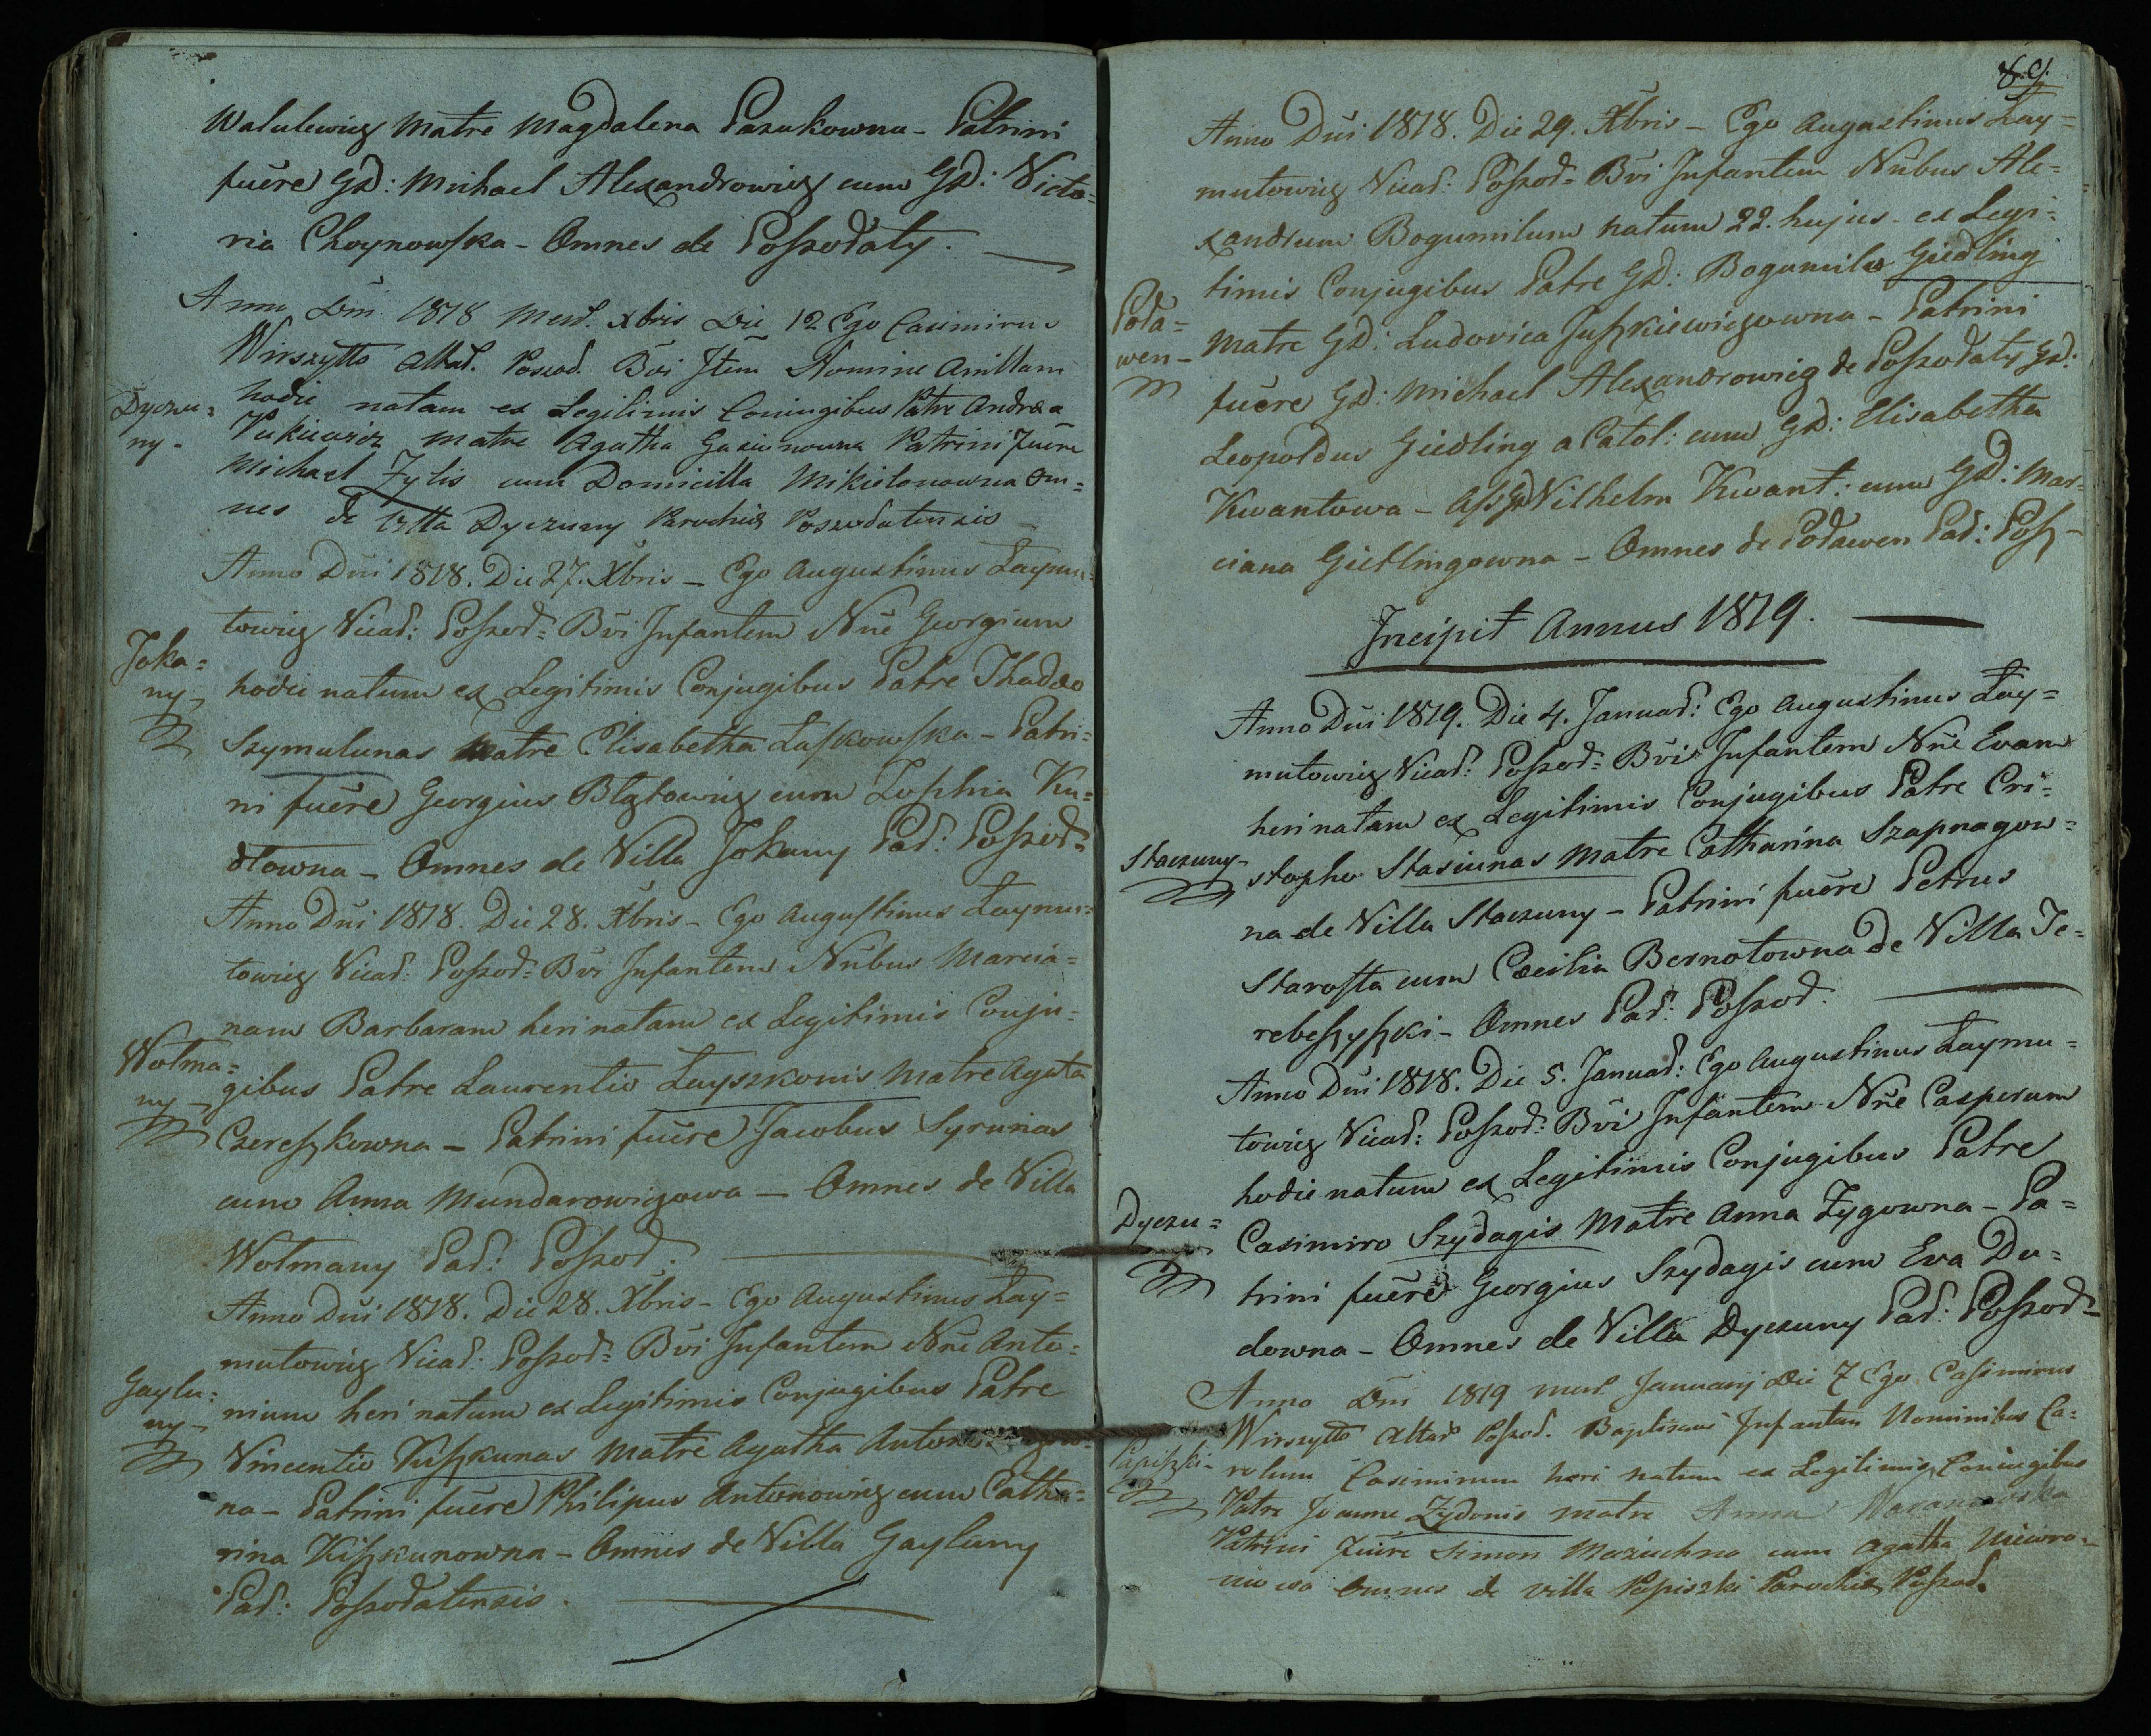 Walulewicz Matre Magdalena Pazukowna - Patrini
fuêre GD: Michael Alexandrowicz cum GD: Victo=
ria Choynowska - Omnes de Poszodaty.
Anno Dni 1818 Mens. Xbris Die 12 Ego Casimirus
Wirszytto Altar. Poszod. Bvi Jtem Nomine Anillam
Dyczu= hodie natam ex Legitimis Coniugibus Patre Andrea
ny - matre Agatha Patrini fuere
Michael Zylis cum Domicilla Mikielonowna Om=
nes de Villa Dyczuny Parochiæ Poszodatensis
Anno Dni 1818. Die 27. Xbris - Ego Augustinus Łaymu=
towicz Vicar: Poszod= Bvi Infantem Nne Georgium
Joka=
ny - hodie natum ex Legitimis Conjugibus Patre Thadæo
Szymulunas Matre Elisabetha Łaskowska - Patri=
ni fuêre Georgius cum Zophia Ku=
dłowna - Omnes de Villa Jokany Par: Poszod=
Anno Dni 1818. Die 28. Xbris - Ego Augustinus Łaymu=
towicz Vicar: Poszod= Bvi Infantem Nnibus Marcia=
nam Barbaram heri natam ex Legitimis Conju=
Wolma= gibus Patre Laurentio Łayszkonis Matre Agata
ny - Czereszkowna - Patrini fuêre Jacobus Syrunas
cum Anna Mundarowiczowa - Omnes de Villa
Wolmany Par: Poszod.
Anno Dni 1818. Die 28. Xbris - Ego Augustinus Łay=
mutowicz Vicar: Poszod= Bvi Infantem Nne Anto=
Gaylu=
ny - nium heri natum ex Legitimis Conjugibus Patre
Vincentio Kiszkunas Matre Agatha
na - Patrini fuêre Philipus Antonowicz cum Catha=
rina Kiszkunowna - Omnes de Villa Gayluny
Par: Poszodatensis.
89.
Anno Dni 1818. Die 29. Xbris - Ego Augustinus Łay=
mutowicz Vicar: Poszod= Bvi Infantem Nnibus Ale=
xandrum Bogumilum natum 22. hujus - ex Legi=
timis Conjugibus Patre GD: Bogumilo Giedling
Poda=
wen - Matre GD: Ludovica Juszkiewiczowna - Patrini
fuêre GD: Michael Alexandrowicz de Poszodaty GD:
Leopoldus Giedling aCatol: cum GD: Elisabetha
Kwantowa - Ass: GD: Vilhelm Kwant: cum GD: Mar=
ciana Gietlingowna - Omnes de Podawen Par: Posz -
Jncipit Annus 1819.
Anno Dni 1819. Die 4. Januar: Ego Augustinus Łay=
mutowicz Vicar: Poszod= Bvi Infantem Nne Evam
heri natam ex Legitimis Conjugibus Patre Cri=
Staczuny - stopho Stasiunas Matre Catharina Szapnagow=
na de Villa Staczuny - Patrini fuêre Petrus
Starosta cum Cæcilia Bernotowna de Villa Je=
rebeszyszki - Omnes Par: Poszod.
Anno Dni 1818. Die 5. Januar: Ego Augustinus Łaymu=
towicz Vicar: Poszod: Bvi Infantem Nne Casperum
hodie natum ex Legitimis Conjugibus Patre
Dyczu= Casimiro Szydagis Matre Anna Łygowna - Pa=
trini fuêre Georgius Szydagis cum Eva Du=
downa - Omnes de Villa Dyczuny Par: Poszod=
Anno Dni 1819 Mens. Januarij Die 7 Ego Casimirus
Wirszytto Altar Poszod. Baptisavi Infantem Nominibus Ca=
Papiszki - rolum Casimirum heri natum ex Legitimis Coniugibus
Patre Joanne Zydonis matre Anna
Patrini fuere Simon cum Agatha
Omnes de villa Papiszki Parochiæ Poszod.